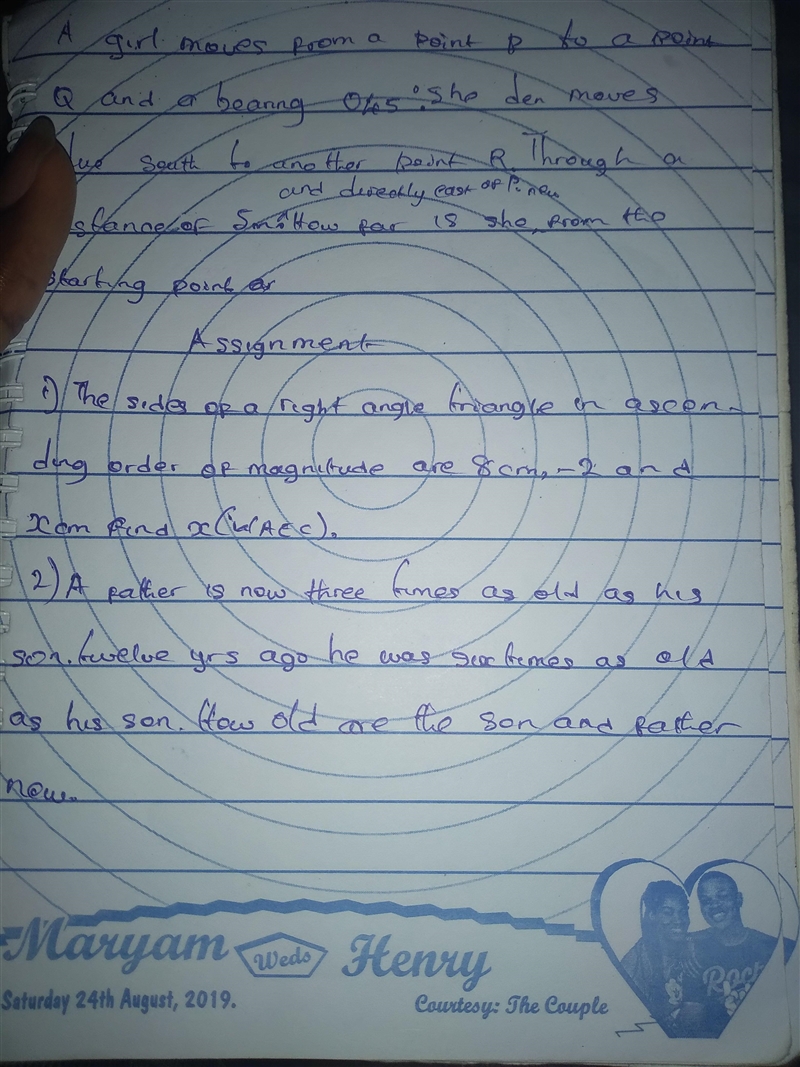 A girl moves from a point P to a point
Q and a bearing 045°. She den moves
due south to another point R. Through a
and directly east of P. now
stance of 5m. How far is she, from the
starting point
Assignment
1) The sides of a right angle triangle in ascen-
ding order of magnitude are 8cm, -2 and
xcm find x (WAEC).
2) A father is now three times as old as his
son. twelve yrs ago he was six times as old
as his son. How old are the son and father
now.
Maryam Weds Henry
Saturday 24th August, 2019.
Courtesy: The Couple